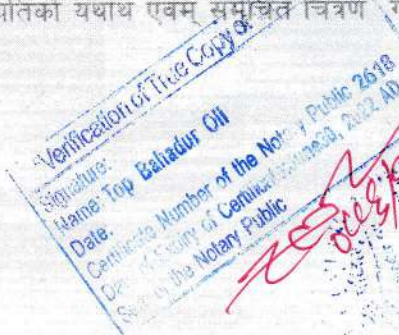 यथार्थ एवम् समुचित चित्रण
Verification of True Copy of
Signature:
Name: Top Bahadur Oli
Date:
Certificate Number of the Notary Public 2618
Date of Expiry of Certificate: June 30, 2022 AD
Seal of the Notary Public